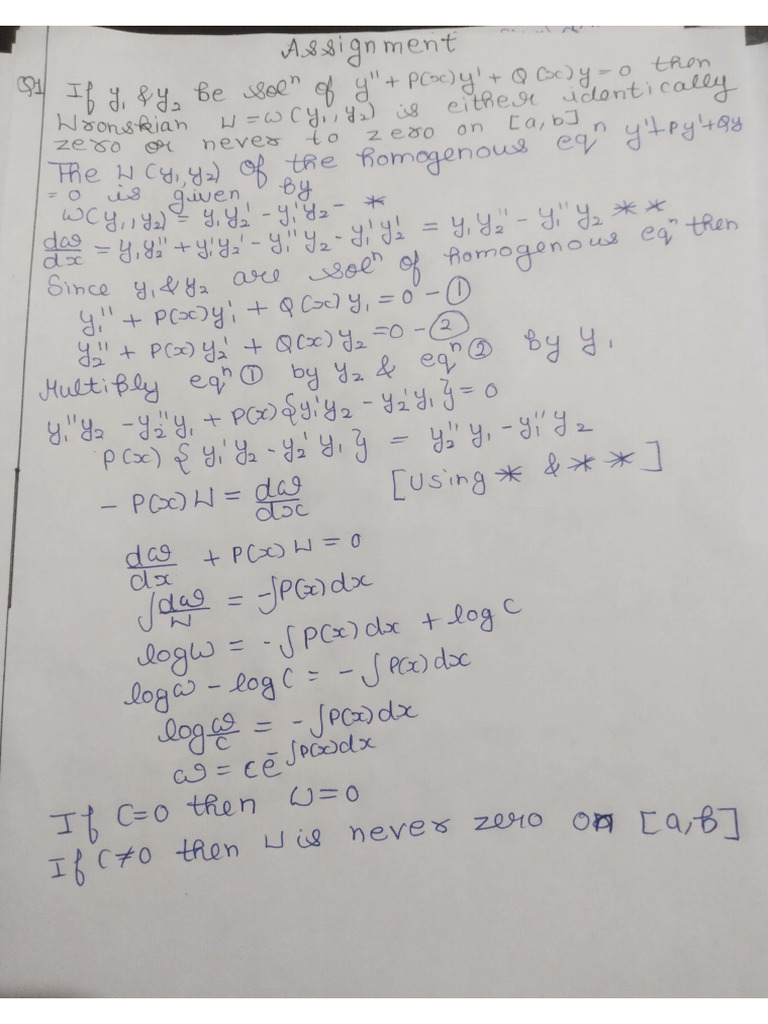 Assignment
Q1 If y₁ & y₂ be solⁿ of y'' + P(x)y' + Q(x)y = 0 then
Wronskian W = W(y₁, y₂) is either identically
zero or never to zero on [a,b]
The W(y₁,y₂) of the homogenous eqⁿ y''+Py'+Qy
= 0 is given by
W(y₁, y₂) = y₁y₂' - y₁'y₂ - *
dw/dx = y₁y₂'' + y₁'y₂' - y₁''y₂ - y₁'y₂' = y₁y₂'' - y₁''y₂ **
Since y₁ & y₂ are solⁿ of homogenous eqⁿ then
y₁'' + P(x)y₁' + Q(x)y₁ = 0 - ①
y₂'' + P(x)y₂' + Q(x)y₂ = 0 - ②
Multibly eqⁿ ① by y₂ & eqⁿ ② by y₁
y₁''y₂ - y₂''y₁ + P(x){y₁'y₂ - y₂'y₁} = 0
P(x) {y₁'y₂ - y₂'y₁} = y₂''y₁ - y₁''y₂
- P(x)W = dw/dx [Using * & **]
dw/dx + P(x)W = 0
∫dw/W = -∫P(x)dx
logw = -∫P(x)dx + logC
logw - logC = -∫P(x)dx
log w/c = -∫P(x)dx
w = ce^-∫P(x)dx
If C=0 then W=0
If C≠0 then W is never zero on [a,b]